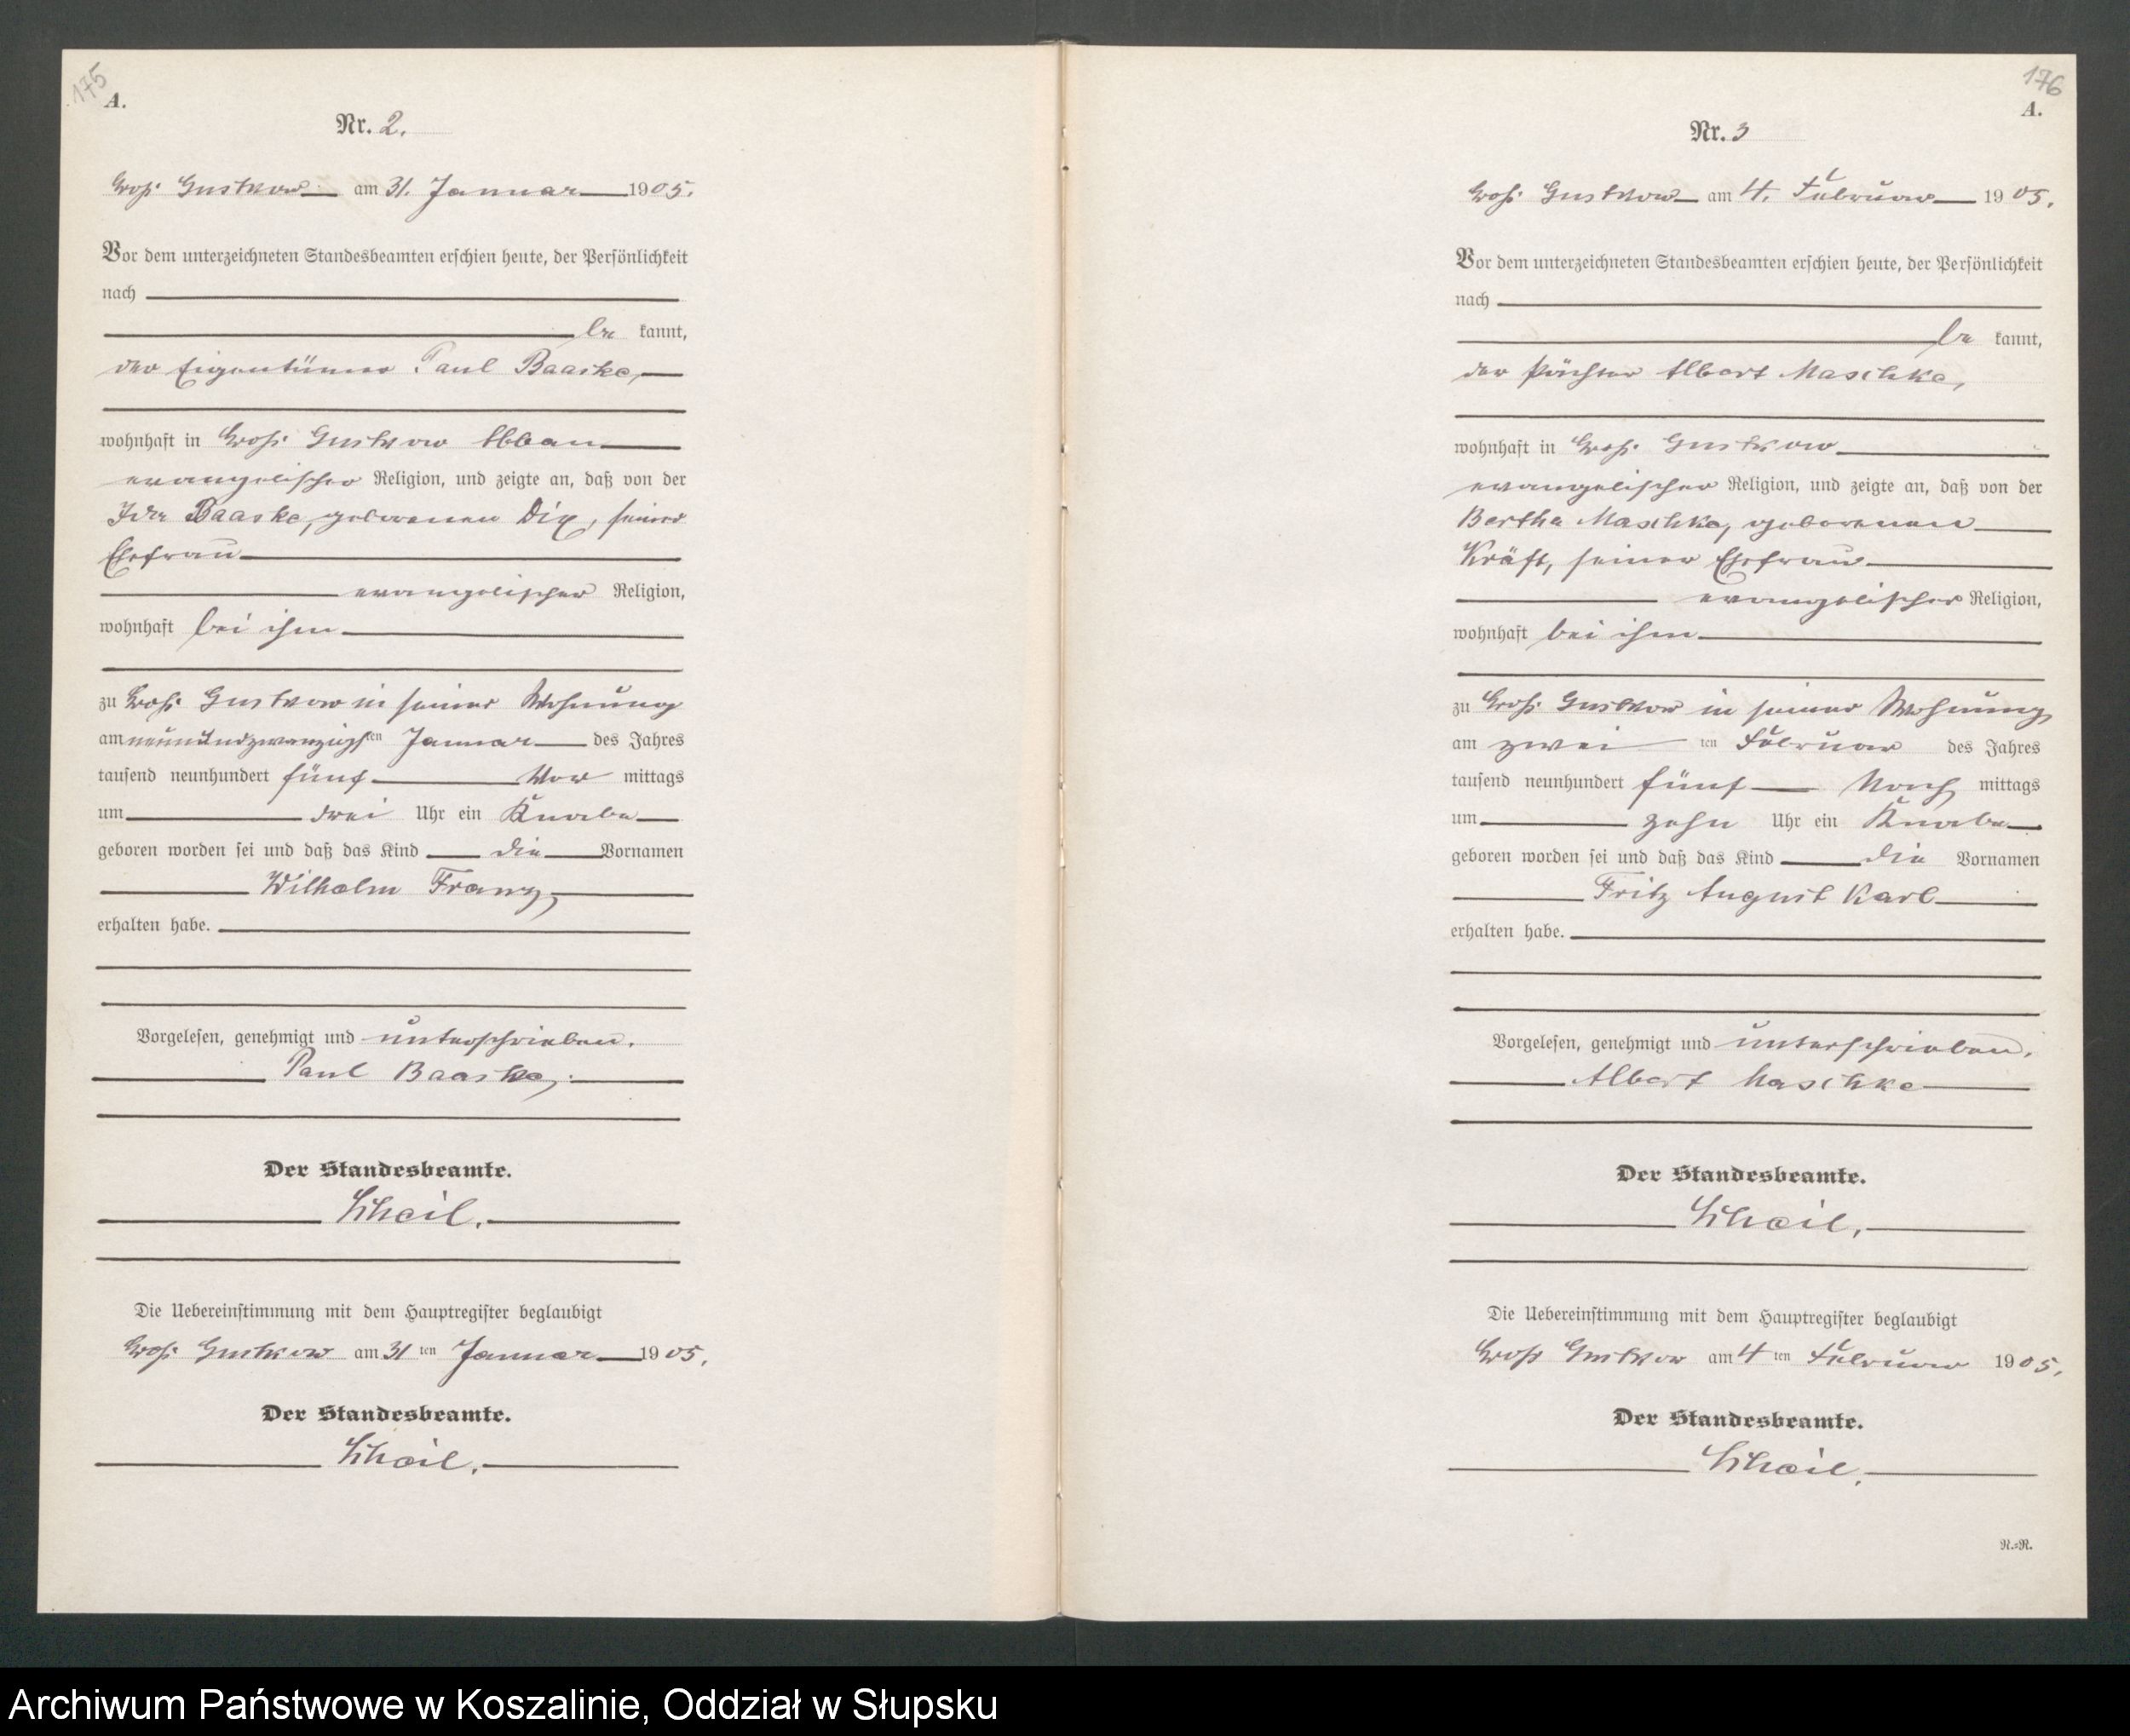 175
A.
Nr. 2.
Groß Gustkow am 31. Januar 1905.
Vor dem unterzeichneten Standesbeamten erschien heute, der Persönlichkeit
nach
be kannt,
der Eigentümer Paul Baaske,
wohnhaft in Groß Gustkow Abbau
evangelischer Religion, und zeigte an, daß von der
Ida Baaske, geborenen Dix, seiner
Ehefrau
evangelischer Religion,
wohnhaft bei ihm
zu Groß Gustkow in seiner Wohnung
am neunundzwanzigsten Januar des Jahres
tausend neunhundert fünf Vor mittags
um drei Uhr ein Knabe
geboren worden sei und daß das Kind die Vornamen
Wilhelm Franz
erhalten habe.
Vorgelesen, genehmigt und unterschrieben.
Paul Baaske,
Der Standesbeamte.
Scheil.
Die Uebereinstimmung mit dem Hauptregister beglaubigt
Groß Gustkow am 31 ten Januar 1905.
Der Standesbeamte.
Scheil.
176
A.
Nr. 3
Groß Gustkow am 4. Februar 1905.
Vor dem unterzeichneten Standesbeamten erschien heute, der Persönlichkeit
nach
be kannt,
der Pächter Albert Maschke,
wohnhaft in Groß Gustkow
evangelischer Religion, und zeigte an, daß von der
Bertha Maschke, geborenen
Kräft, seiner Ehefrau
evangelischer Religion,
wohnhaft bei ihm
zu Groß Gustkow in seiner Wohnung
am zwei ten Februar des Jahres
tausend neunhundert fünf Nach mittags
um zehn Uhr ein Knabe
geboren worden sei und daß das Kind die Vornamen
Fritz August Karl
erhalten habe.
Vorgelesen, genehmigt und unterschrieben.
Albert Maschke
Der Standesbeamte.
Scheil.
Die Uebereinstimmung mit dem Hauptregister beglaubigt
Groß Gustkow am 4 ten Februar 1905.
Der Standesbeamte.
Scheil.
R.=R.
Archiwum Państwowe w Koszalinie, Oddział w Słupsku